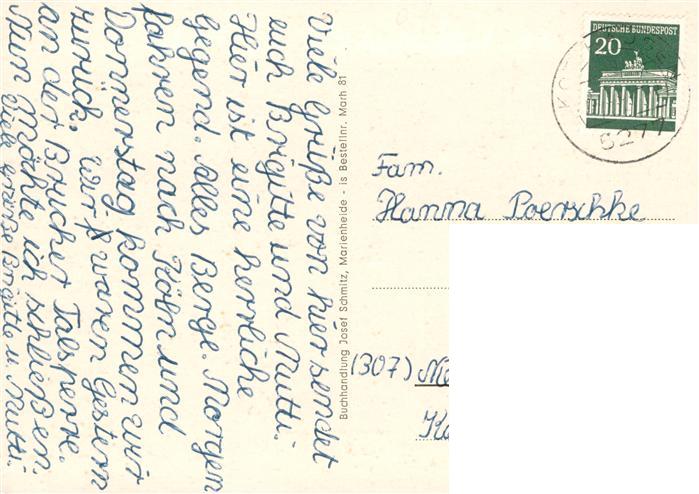 Viele Grüße von hier sendet
euch Brigitte und Mutti.
Hier ist eine herrliche
Gegend. Alles Berge. Morgen
fahren nach Köln und
Donnerstag kommen wir
zurück. Wir waren Gestern
an der Brucher Talsperre.
Nun Möchte ich schließen.
Viele Grüße Brigitte u. Mutti.
Buchhandlung Josef Schmitz, Marienheide - is Bestellnr. Marh 81
DEUTSCHE BUNDESPOST
20
5277
Fam.
Hanna Poerschke
(307)